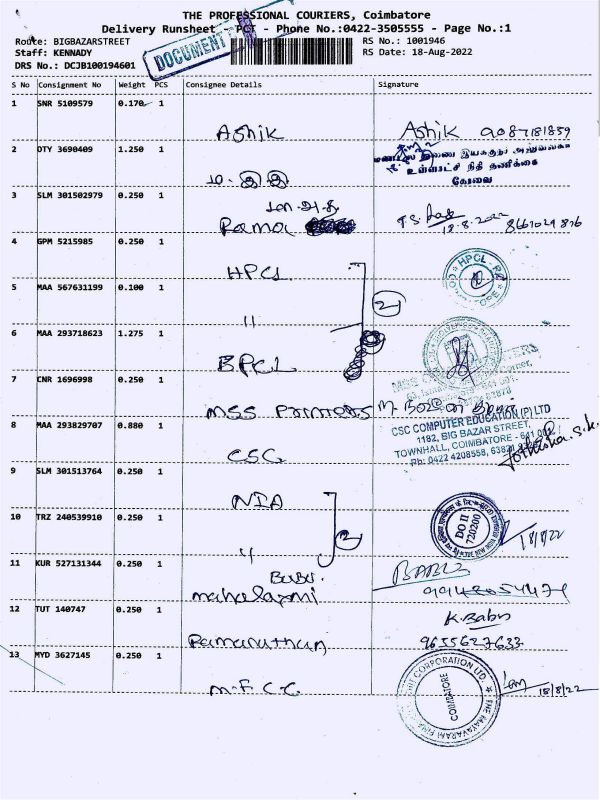 THE PROFESSIONAL COURIERS, Coimbatore
Delivery Runsheet - PCT - Phone No.:0422-3505555 - Page No.:1
DOCUMENT
Route: BIGBAZARSTREET RS No.: 1001946
Staff: KENNADY RS Date: 18-Aug-2022
DRS No.: DCJB100194601
S No Consignment No Weight PCS Consignee Details Signature
1 SNR 5109579 0.170 1
Ashik Ashik 9087181859
2 OTY 3690409 1.250 1
உள்ளாட்சி நிதி தணிக்கை
கோவை
3 SLM 301502979 0.250 1
Rama 18.8.2022 8667029876
4 GPM 5215985 0.250 1
HPCL HPCL
5 MAA 567631199 0.100 1
11 2
6 MAA 293718623 1.275 1
BPCL
7 CNR 1696998 0.250 1
MSS Printers
8 MAA 293829707 0.880 1
CSC COMPUTER EDUCATION (P) LTD
1182, BIG BAZAR STREET,
TOWNHALL, COIMBATORE - 641 001
Ph: 0422 4208558,
CSC
9 SLM 301513764 0.250 1
NIA DO II
720200
10 TRZ 240539910 0.250 1
11 2 18/8/22
11 KUR 527131344 0.250 1
Babu BABU
mahalaxmi
12 TUT 140747 0.250 1
K.Babu
Ramanathan 9655627633
13 MYD 3627145 0.250 1
M.F.C.C CORPORATION LTD. COIMBATORE 18/8/22